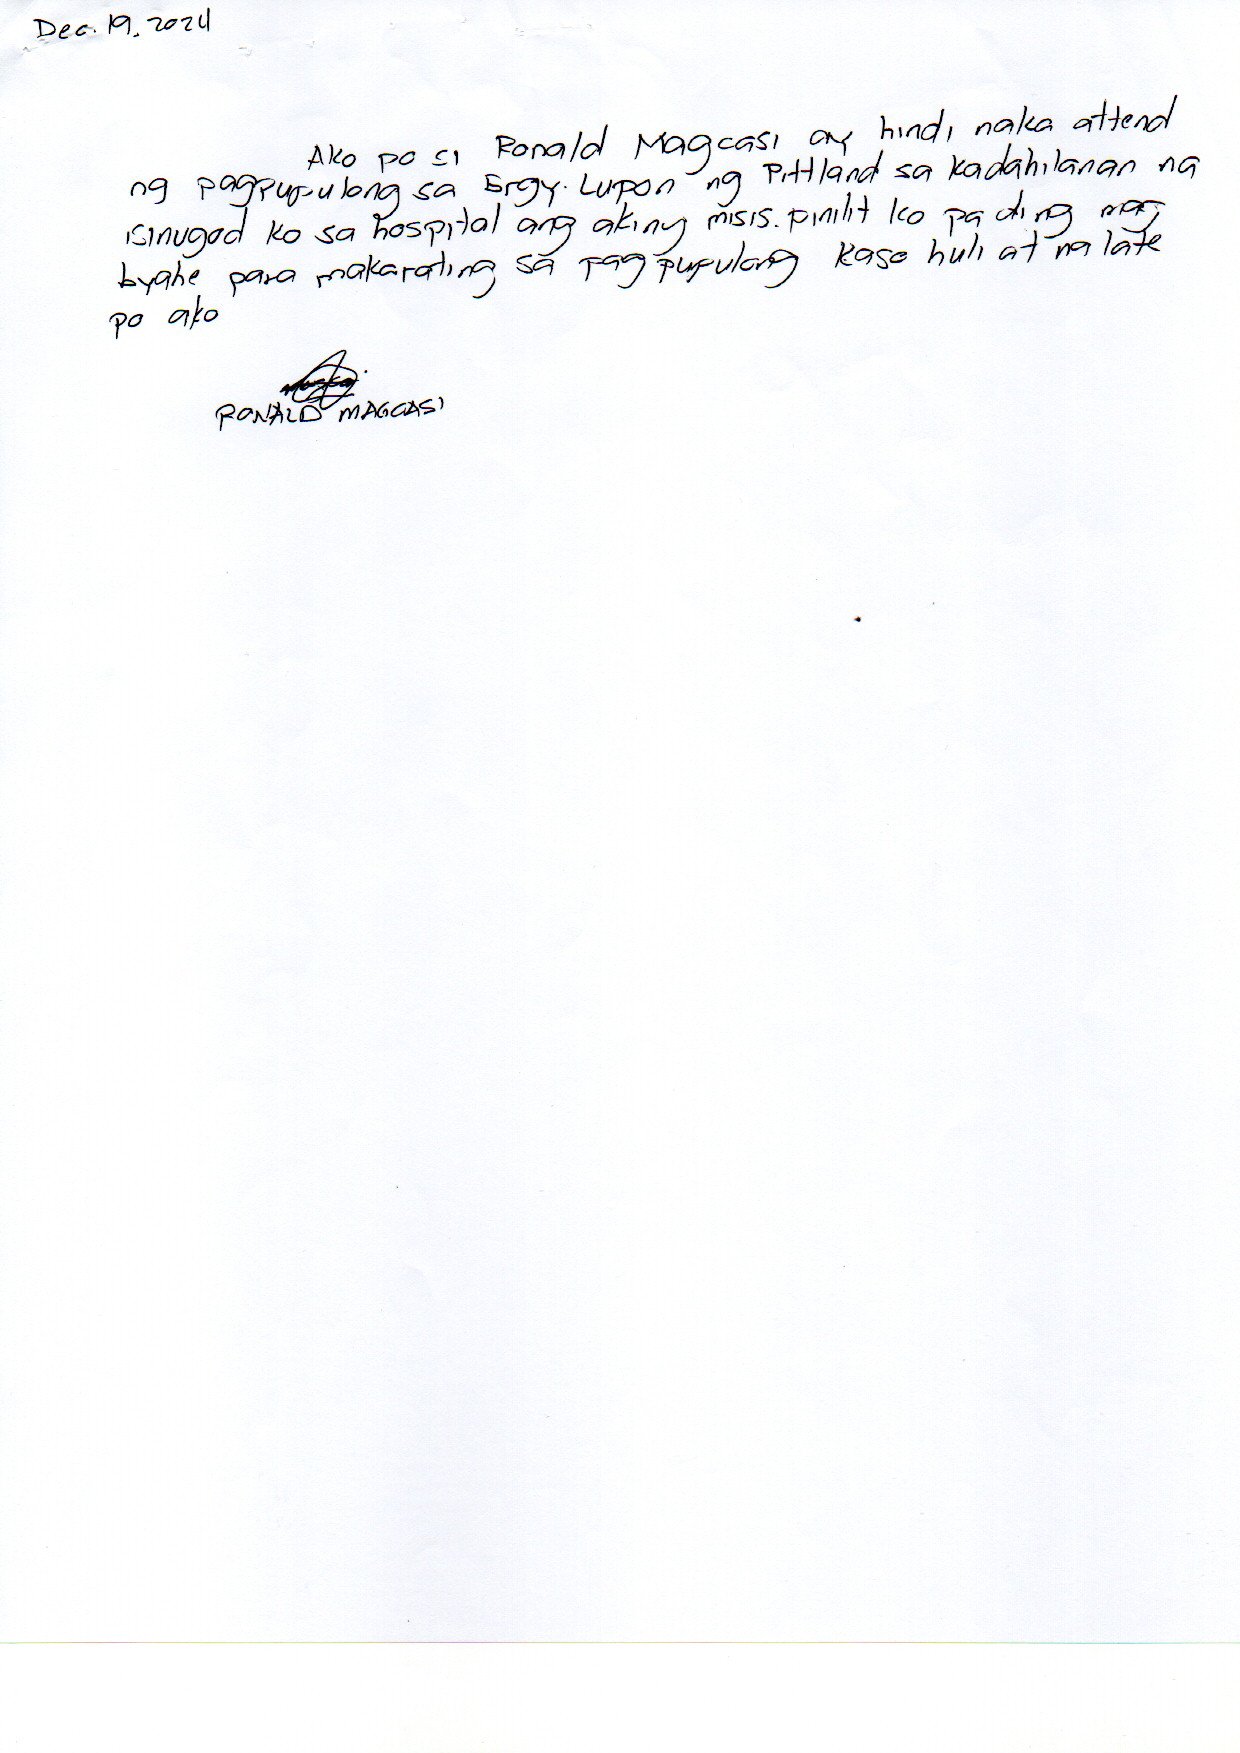 Dec. 19, 2024
Ako po si Ronald Magcasi ay hindi naka attend
ng pagpupulong sa Brgy. Lupon ng Pittland sa kadahilanan na
isinugod ko sa hospital ang aking misis. pinilit ko pa ding mag
byahe para makarating sa pagpupulong kaso huli at na late
po ako
RONALD MAGCASI